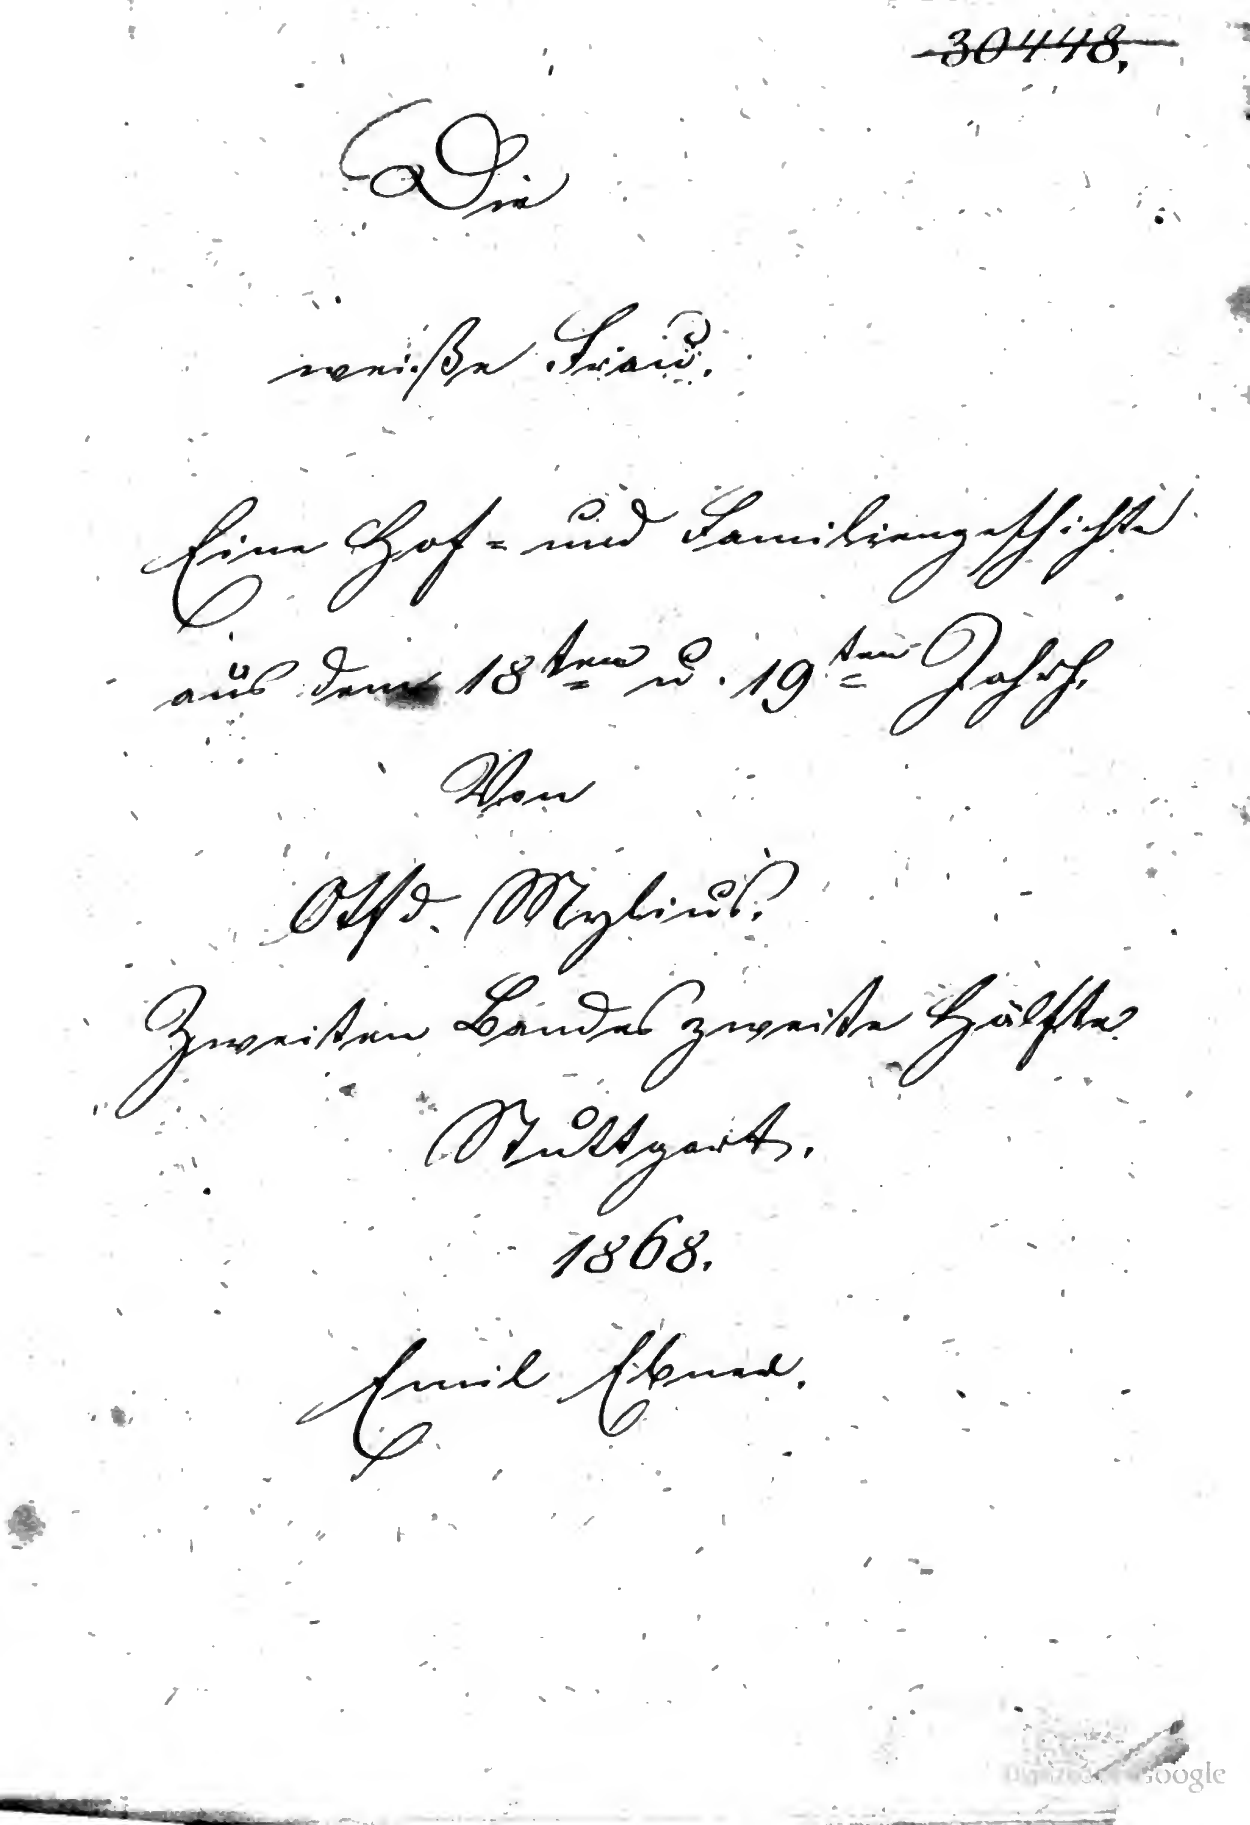 30448.
Die
weiße Frau.
Eine Hof- und Familiengeschichte
aus dem 18ten u. 19ten Jahrh.
Von
Otfd. Mylius.
Zweiten Bandes zweite Hälfte
Stuttgart.
1868.
Emil Ebner.
Digitized by Google